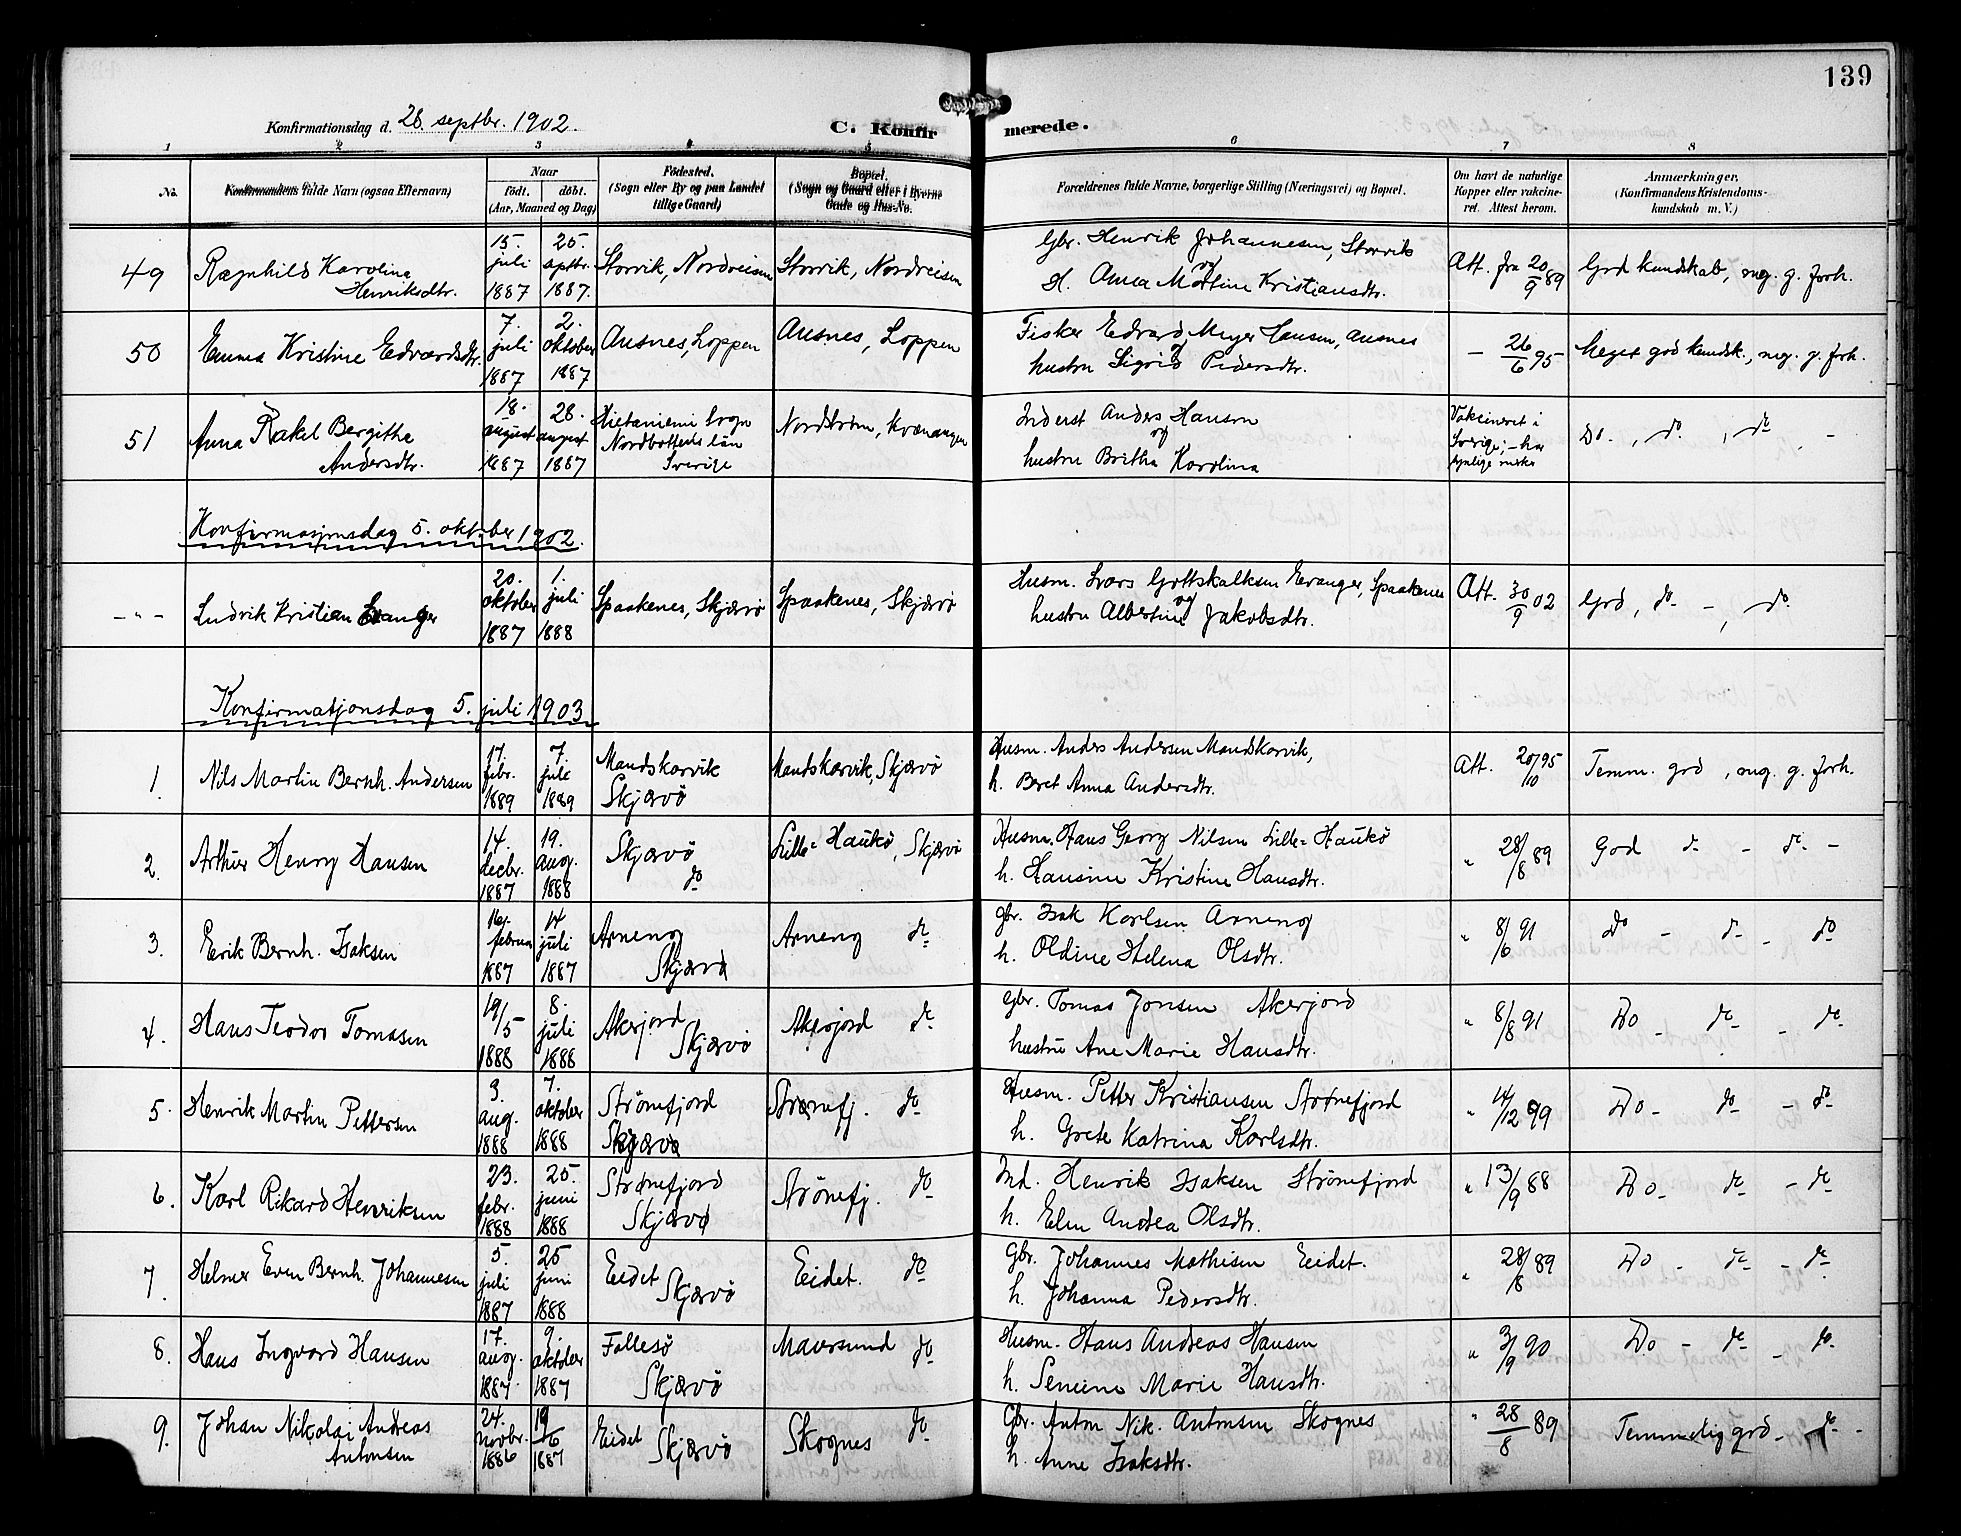 139
Konfirmationsdag d. 28. septbr. 1902.
C. Konfirmerede.
1 2 3 4 5 6 7 8
No.
Konfirmandens fulde Navn (ogsaa Efternavn)
Naar
født. døbt.
(Aar, Maaned og Dag)
Fødested.
(Sogn eller By og paa Landet
tillige Gaard)
Bopæl.
(Sogn og Gaard eller i Byerne
Gade og Hus-No.
Forældrenes fulde Navne, borgerlige Stilling (Næringsvei) og Bopæl.
Om havt de naturlige
Kopper eller vakcine-
ret. Attest herom.
Anmærkninger.
(Konfirmandens Kristendoms-
kundskab m. V.)
49 Ragnhild Karolina
Henriksdtr.
15. juli 1887
25. sptbr. 1887.
Storvik, Nordreisen
Storvik, Nordreisen
Gbr. Henrik Johannesen, Storvik
og
H. Anna Martine Kristiansdtr.
Att. fra 20/9 89
God kundskab, meg. g. forh.
50 Emma Kristine Edvardsdtr.
7. juli 1887
2. oktober 1887
Ausnes, Loppen
Ausnes, Loppen
Fisker Edvard Meyer Hansen, Ausnes
og
hustru Sigrid Pedersdtr.
— 26/6 95
Meget god kundsk., meg. g. forh.
51 Anna Rakel Bergitha
Andersdtr.
18. august 1887
28. august 1887
Hietaniemi Sogn
Nordbottens län
Sverige
Nordstrøm, Kvænangen
Inderst Anders Hanson
og
hustru Britha Karolina
Vakcineret i
Sverige; – har
synlige merker
Do. , do. , do. –
Konfirmasjonsdag 5. oktober 1902.
– " – Ludvik Kristian Evanger
20. oktober 1887
1. juli 1888
Spaakenes, Skjærvø
Spaakenes, Skjærvø
Husm. Lars Gottskalksen Evanger, Spaakenes
og
hustru Albertine Jakobsdtr.
Att. 30/9 02
God, do. – , do.
Konfirmatjonsdag 5. juli 1903
1. Nils Martin Bernh. Andersen
17. febr. 1889
7. juli 1889
Mandskarvik
Skjærvø
Mandskarvik, Skjærvø
Husm. Anders Andersen Mandskarvik,
h. Beret Anna Andersdtr.
Att. 20/10 95
Temm. god, meg. g. forh.
2. Arthur Henry Hansen
14. decbr. 1887
19. aug. 1888
Skjærvø
do
Lille-Haukø, Skjærvø
Husm. Hans Georg Nilsen Lille-Haukø
h. Hansine Kristine Hansdtr.
" 28/8 89
God do – do –
3. Erik Bernh. Isaksen
16. februar 1887
14 juli 1887
Arneng
Skjærvø
Arneng do
gbr. Isak Karlsen Arneng
h. Oldine Helena Olsdtr.
" 8/6 91
do – do – do
4. Hans Teodor Tomasen
19/5 1888
8. juli 1888
Akerjord
Skjærvø
Akerjord do
gbr. Tomas Jonsen Akerjord
hustru Ane Marie Hansdtr.
" 8/8 91
Do – do – do
5. Henrik Martin Pettersen
3. aug. 1888
7. oktober 1888
Strømefjord
Skjærvø
Strømefj. do
Husm. Petter Kristiansen Strømefjord
h. Grete Katrina Karlsdtr.
" 14/12 99
Do – do – do
6. Karl Rikard Henriksen
23. febr. 1888
25. juni 1888
Strømefjord
Skjærvø
Strømefj. do
Ind. Henrik Isaksen Strømefjord
h. Elen Andrea Olsdtr.
" 13/9 88
Do – do – do
7. Helmer Even Bernh. Johannesen
5. juli 1887
25 juni 1888
Eidet
Skjærvø
Eidet. do
Gbr. Johannes Mathisen Eeidet.
h. Johanna Pedersdtr.
" 28/8 89
Do – do – do
8. Hans Ingvard Hansen
17. aug. 1887
9. oktober 1887
Follesø
Skjærvø
Maursund do
Husm. Hans Andreas Hansen
h. Senine Marie Hansdtr.
" 3/9 90
Do – do – do
9. Johan Nikolai Andreas
Antonsen
24. novbr. 1886
19/6 1887
Eidet
Skjærvø
Skognes do
Gbr. Anton Nik. Antonsen Skognes
h. Anne Isaksdtr.
" 28/8 89
Temmelig god – do –